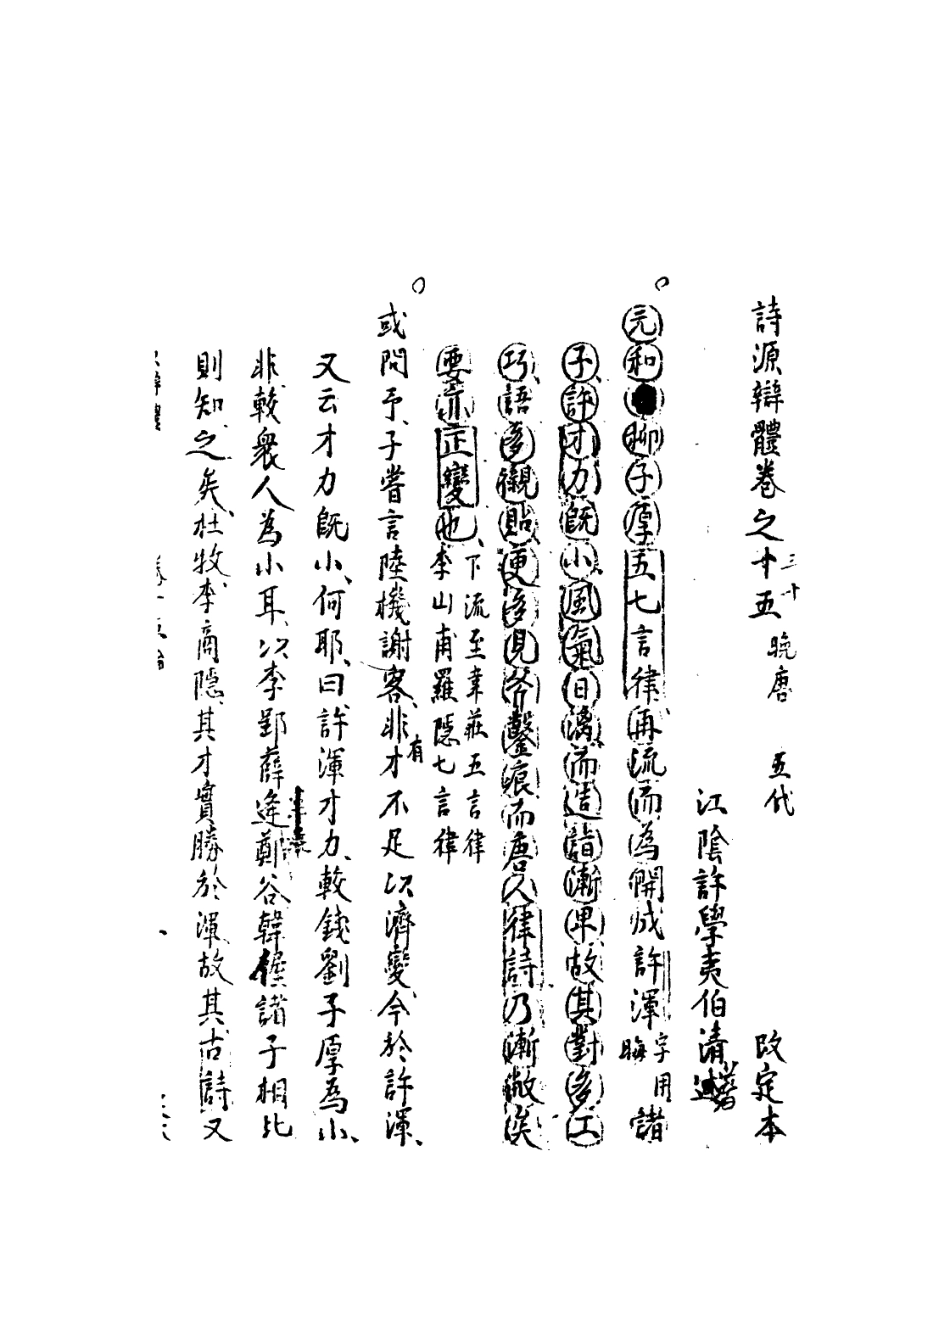 詩源辯體卷之十五 三十 晚唐 五代 改定本
江陰許學夷伯清著
元和柳子厚五七言律再流而為開成許渾字用晦諸
子許才力既小風氣日漓而造詣漸卑故其對多工
巧語多襯貼更多見斧鑿痕而唐人律詩乃漸敝矣
要亦正變也下流至韋莊五言律李山甫羅隱七言律
或問予子嘗言陸機謝客非有才不足以濟變今於許渾
又云才力既小何耶曰許渾才力較錢劉子厚為小
非較衆人為小耳以李郢薛逢鄭谷韓偓諸子相比
則知之矣杜牧李商隱其才實勝於渾故其古詩又